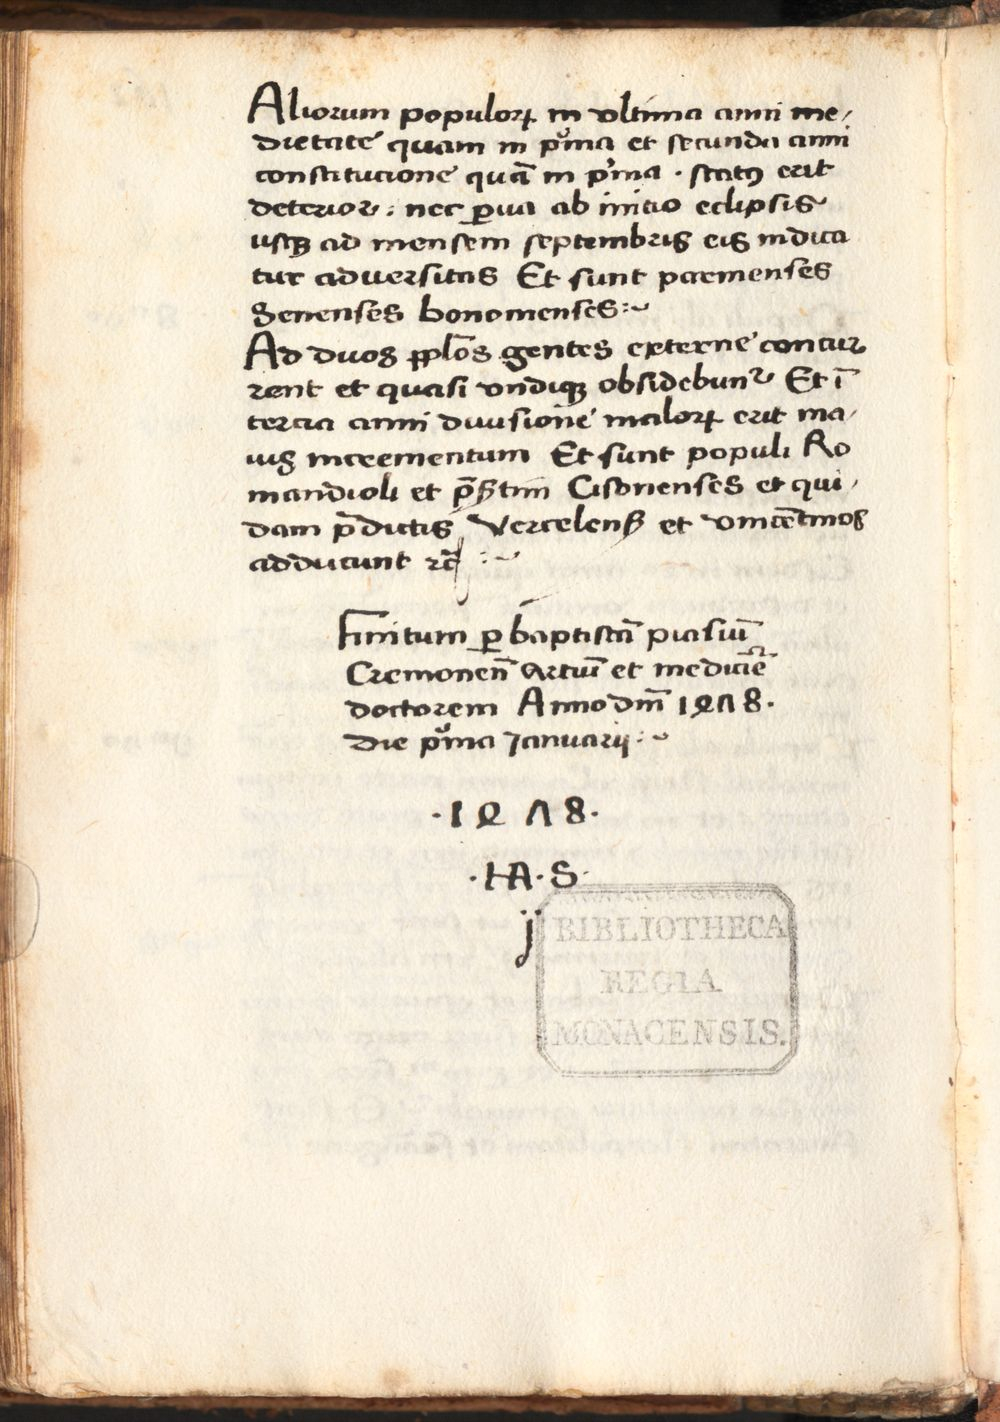 Aliorum populoꝝ in vltima anni me/
dietate quam in pͥma et secunda anni
constitucione quā in pͥma · statꝰ erit
deterior: nec ꝑua ab initio eclipsis
usqꝫ ad mensem septembris eis indica
tur adversitas Et sunt parmenses
genenses bononienses:~
Ad duos pplōs gentes externe concur
rent et quasi vndiqꝫ obsidebunᷣ Et ī
tercia anni divisione maloꝝ erit ma/
ius incrementum Et sunt populi Ro
mandioli et Cisonienses et qui/
dam p̄dictis Vercelenß et vincētinos
adducunt ꝛc̄ :~
Finitum ꝑ baptistā piasiuī
Cremonen̄ Artiū et medicīe
doctorem Anno dm̄ 1478·
die pͥma Ianuarij:~
·1478·
·HA·S·
j
BIBLIOTHECA
REGIA
MONACENSIS.